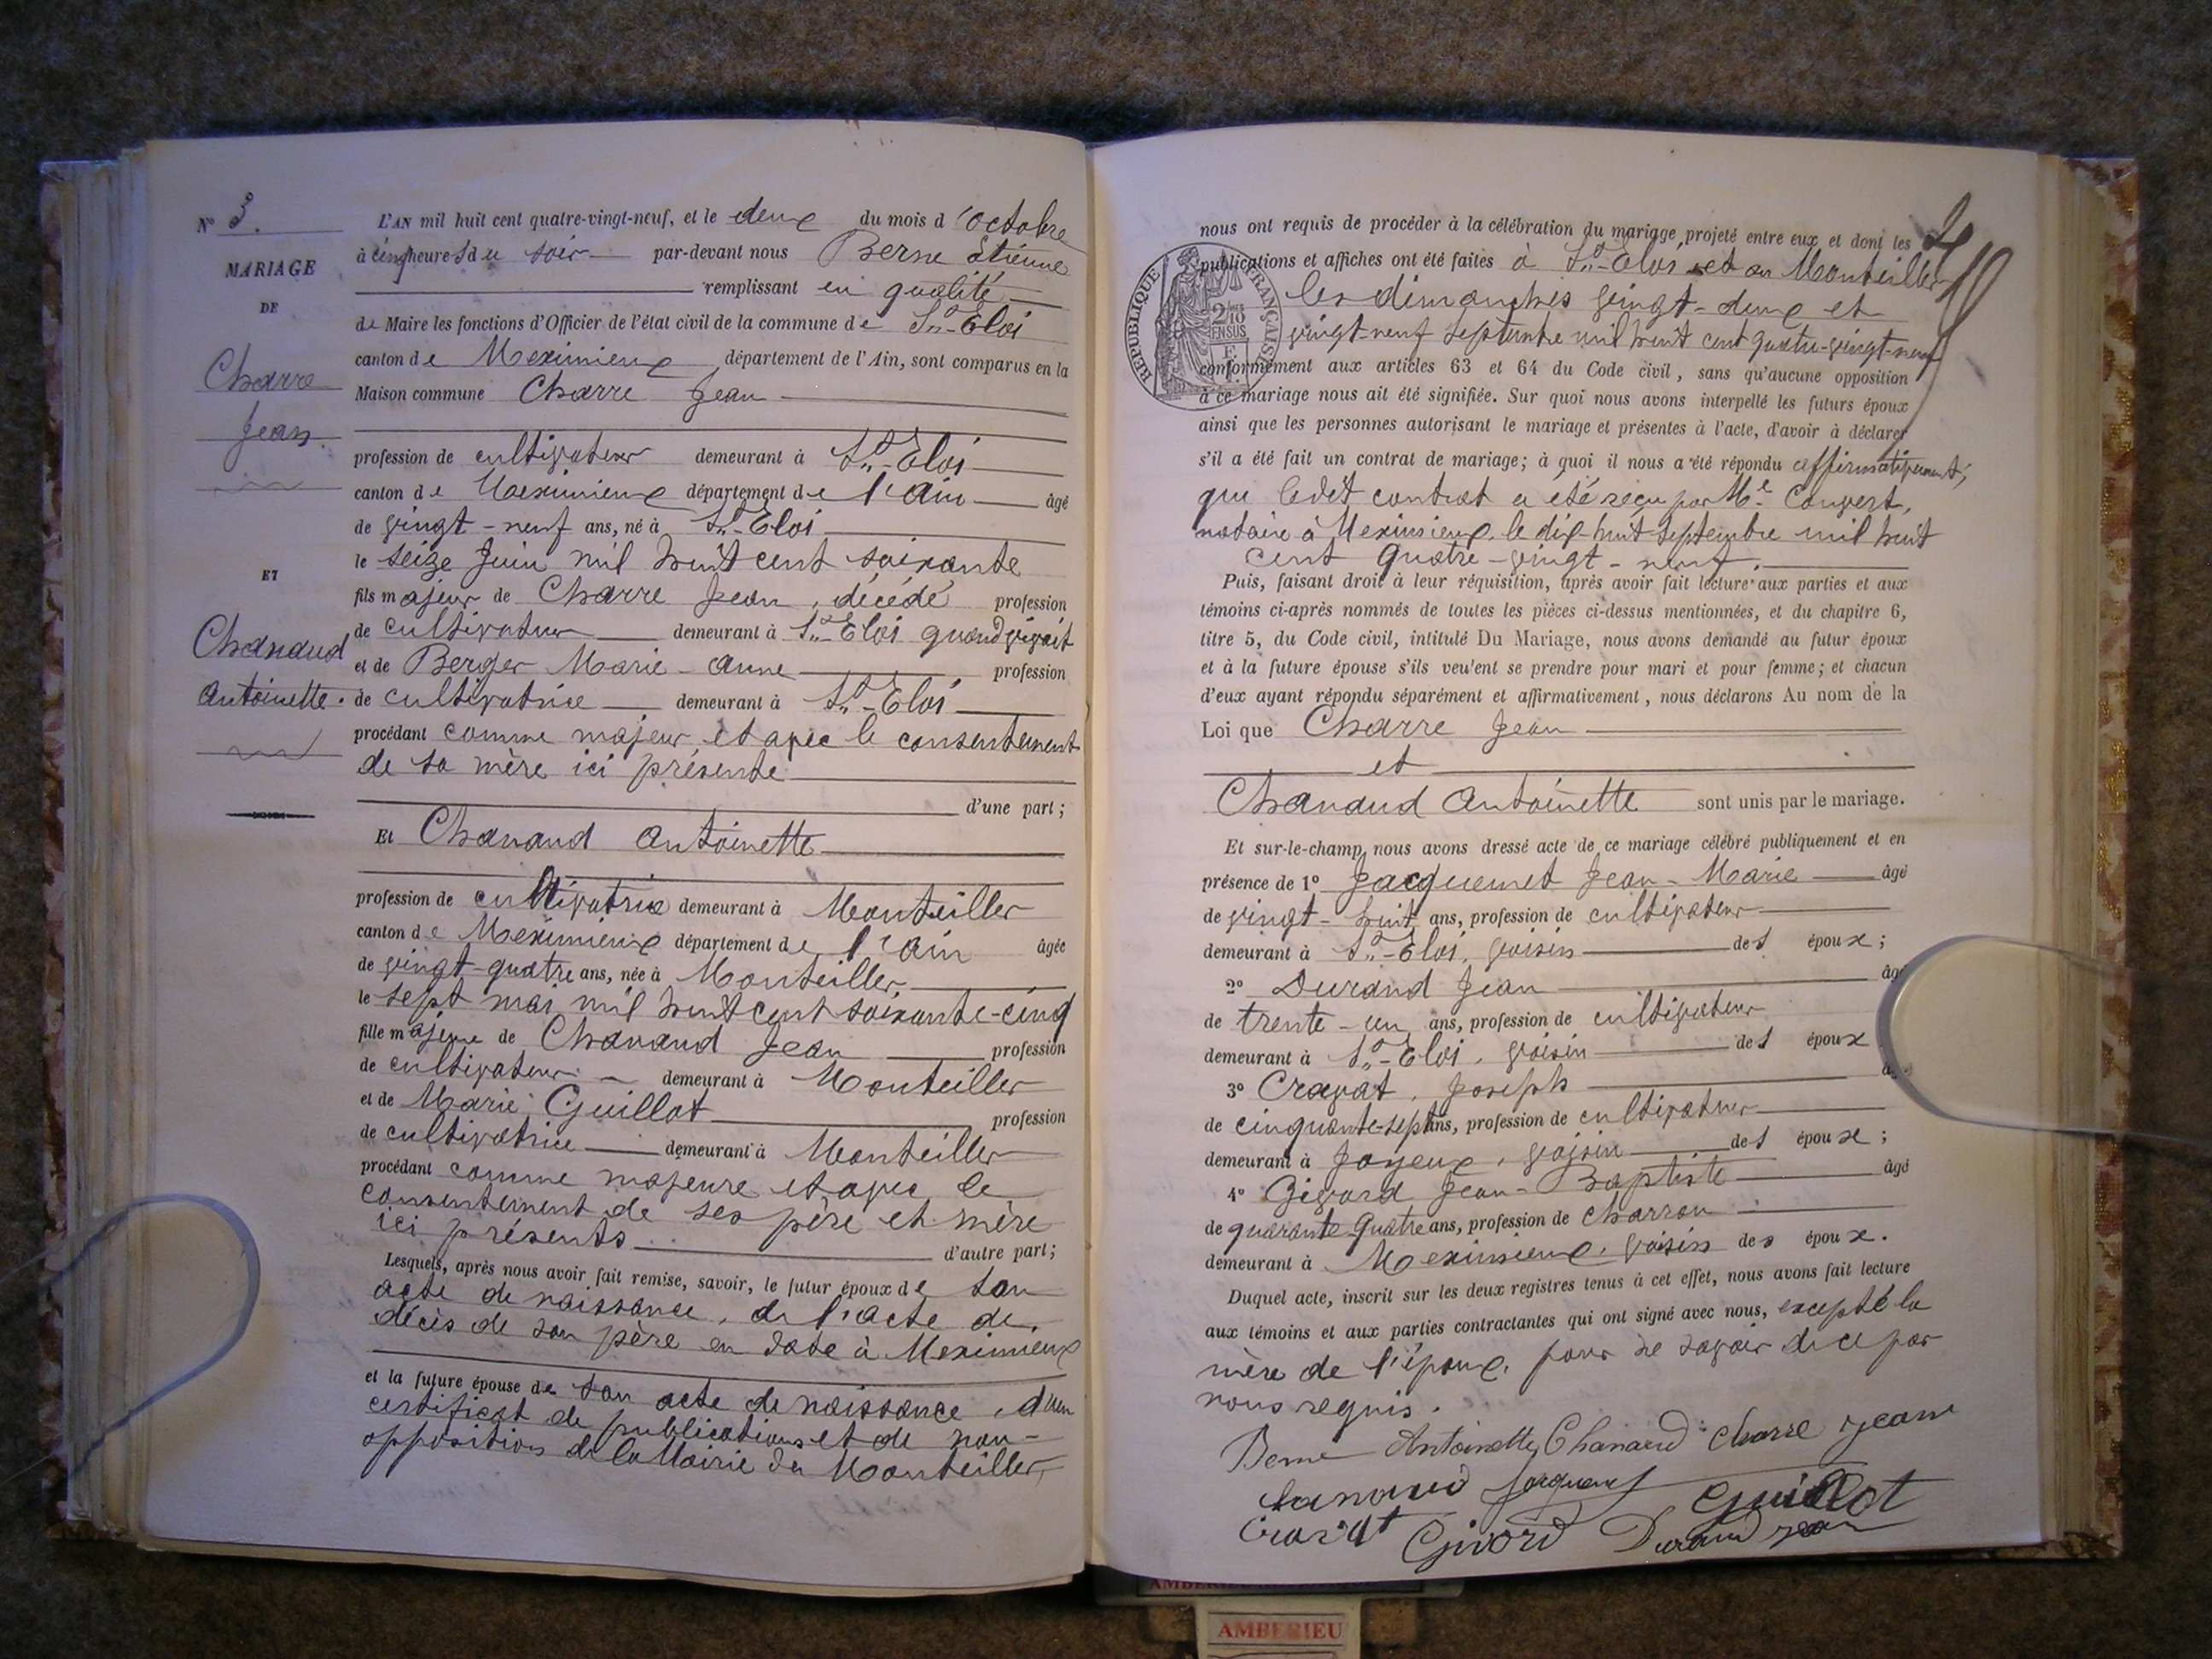 N° 3.
MARIAGE
DE
Charre
Jean.
ET
Chanaud
Antoinette.
L'AN mil huit cent quatre-vingt-neuf, et le deux du mois d'octobre
à cinq heures du soir par-devant nous Berne Étienne
remplissant en qualité
de Maire les fonctions d'Officier de l'état civil de la commune de St-Eloi
canton de Meximieux département de l'Ain, sont comparus en la
Maison commune Charre Jean
profession de cultivateur demeurant à St-Eloi
canton de Meximieux département de l'Ain âgé
de vingt-neuf ans, né à St-Eloi
le seize Juin mil huit cent soixante
fils majeur de Charre Jean, décédé profession
de cultivateur demeurant à St-Eloi quand vivait
et de Berger Marie-Anne profession
de cultivatrice demeurant à St-Eloi
procédant comme majeur et avec le consentement
de sa mère ici présente
d'une part;
Et Chanaud Antoinette
profession de cultivatrice demeurant à Monteiller
canton de Meximieux département de l'Ain âgée
de vingt-quatre ans, née à Monteiller
le sept mai mil huit cent soixante-cinq
fille majeure de Chanaud Jean profession
de cultivateur demeurant à Monteiller
et de Marie Guillot profession
de cultivatrice demeurant à Monteiller
procédant comme majeure et avec le
consentement de ses père et mère
ici présents
d'autre part;
Lesquels, après nous avoir fait remise, savoir, le futur époux de son
acte de naissance, de l'acte de
décès de son père en date à Meximieux
et la future épouse de son acte de naissance, d'un
certificat de publications et de non-
opposition de la Mairie du Monteiller,
nous ont requis de procéder à la célébration du mariage projeté entre eux et dont les
publications et affiches ont été faites à St-Eloi et au Monteiller
les dimanches vingt-deux et
vingt-neuf septembre mil huit cent quatre-vingt-neuf
conformément aux articles 63 et 64 du Code civil, sans qu'aucune opposition
à ce mariage nous ait été signifiée. Sur quoi nous avons interpellé les futurs époux
ainsi que les personnes autorisant le mariage et présentes à l'acte, d'avoir à déclarer
s'il a été fait un contrat de mariage; à quoi il nous a été répondu affirmativement,
que ledit contrat a été reçu par Me Convert,
notaire à Meximieux, le dix-huit septembre mil huit
cent quatre-vingt-neuf.
Puis, faisant droit à leur réquisition, après avoir fait lecture aux parties et aux
témoins ci-après nommés de toutes les pièces ci-dessus mentionnées, et du chapitre 6,
titre 5, du Code civil, intitulé Du Mariage, nous avons demandé au futur époux
et à la future épouse s'ils veulent se prendre pour mari et pour femme; et chacun
d'eux ayant répondu séparément et affirmativement, nous déclarons Au nom de la
Loi que Charre Jean
et
Chanaud Antoinette sont unis par le mariage.
Et sur-le-champ, nous avons dressé acte de ce mariage célébré publiquement et en
présence de 1° Jacquemet Jean-Marie âgé
de vingt-huit ans, profession de cultivateur
demeurant à St-Eloi, voisin des époux;
2° Durand Jean âgé
de trente-un ans, profession de cultivateur
demeurant à St-Eloi, voisin des époux
3° Cravat, Joseph
de cinquante-sept ans, profession de cultivateur
demeurant à Joyeux, voisin des époux;
4° Givord Jean-Baptiste âgé
de quarante quatre ans, profession de charron
demeurant à Meximieux, voisin des époux.
Duquel acte, inscrit sur les deux registres tenus à cet effet, nous avons fait lecture
aux témoins et aux parties contractantes qui ont signé avec nous, excepté la
mère de l'époux, pour ne savoir de ce par
nous requis.
Berne Antoinette Chanaud Charre Jean
Chanaud Jacquemet Guillot
Cravat Givord Durand Jean
RÉPUBLIQUE FRANÇAISE
2/10
EN SUS
AMBERIEU